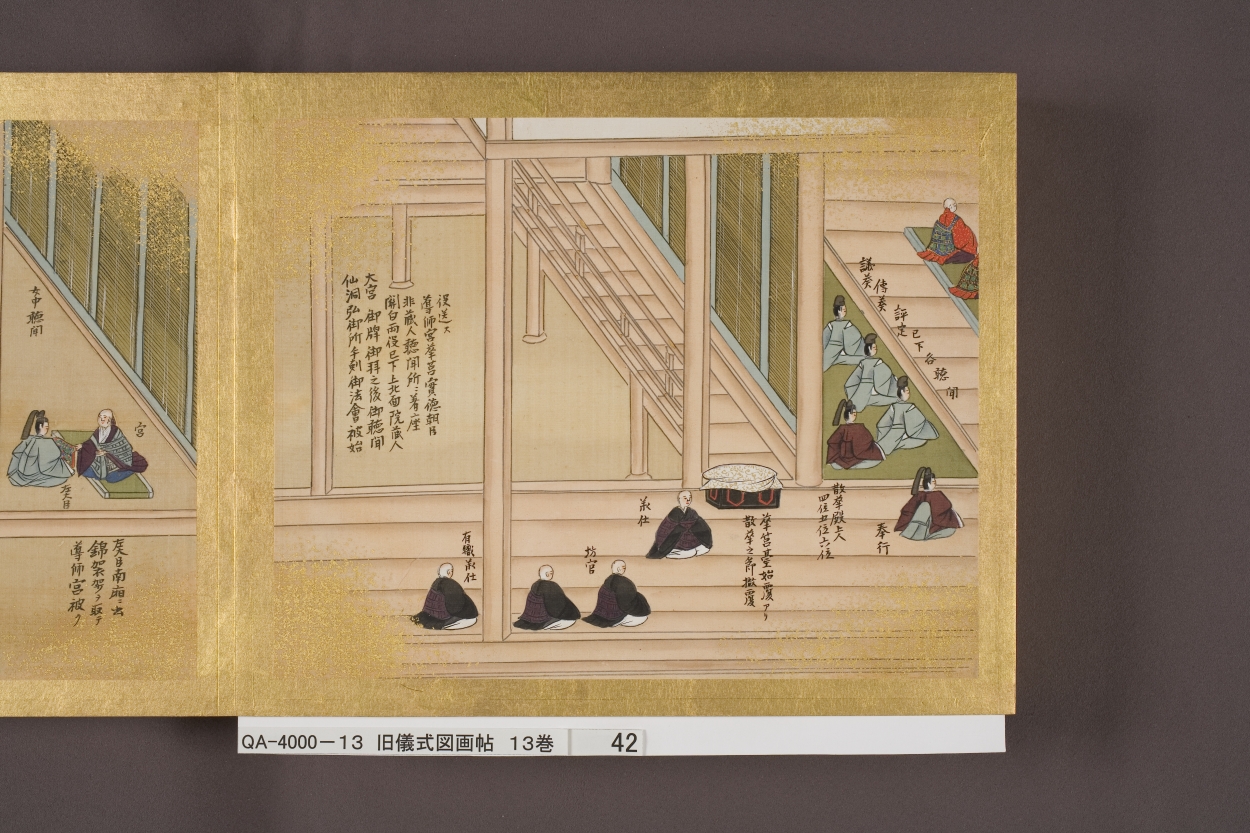 議奏
傳奏
評定
已下
各
聴
聞
奉行
散華殿上人
四位五位六位
華筥基始覆アリ
散華之節撤覆
承仕
坊官
有職承仕
役送大
導師宮華筥實德朝臣
非蔵人聴聞所ニ着座
関白両役已下上北面院蔵人
大宮御牌御拜之後御聴聞
仙洞弘御所手剣御法會被始
宮
左大臣
女中聴聞
左大臣南廂ニ出
錦袈裟ヲ取テ
導師宮被ク
QA-4000-13 旧儀式図画帖 13巻
42